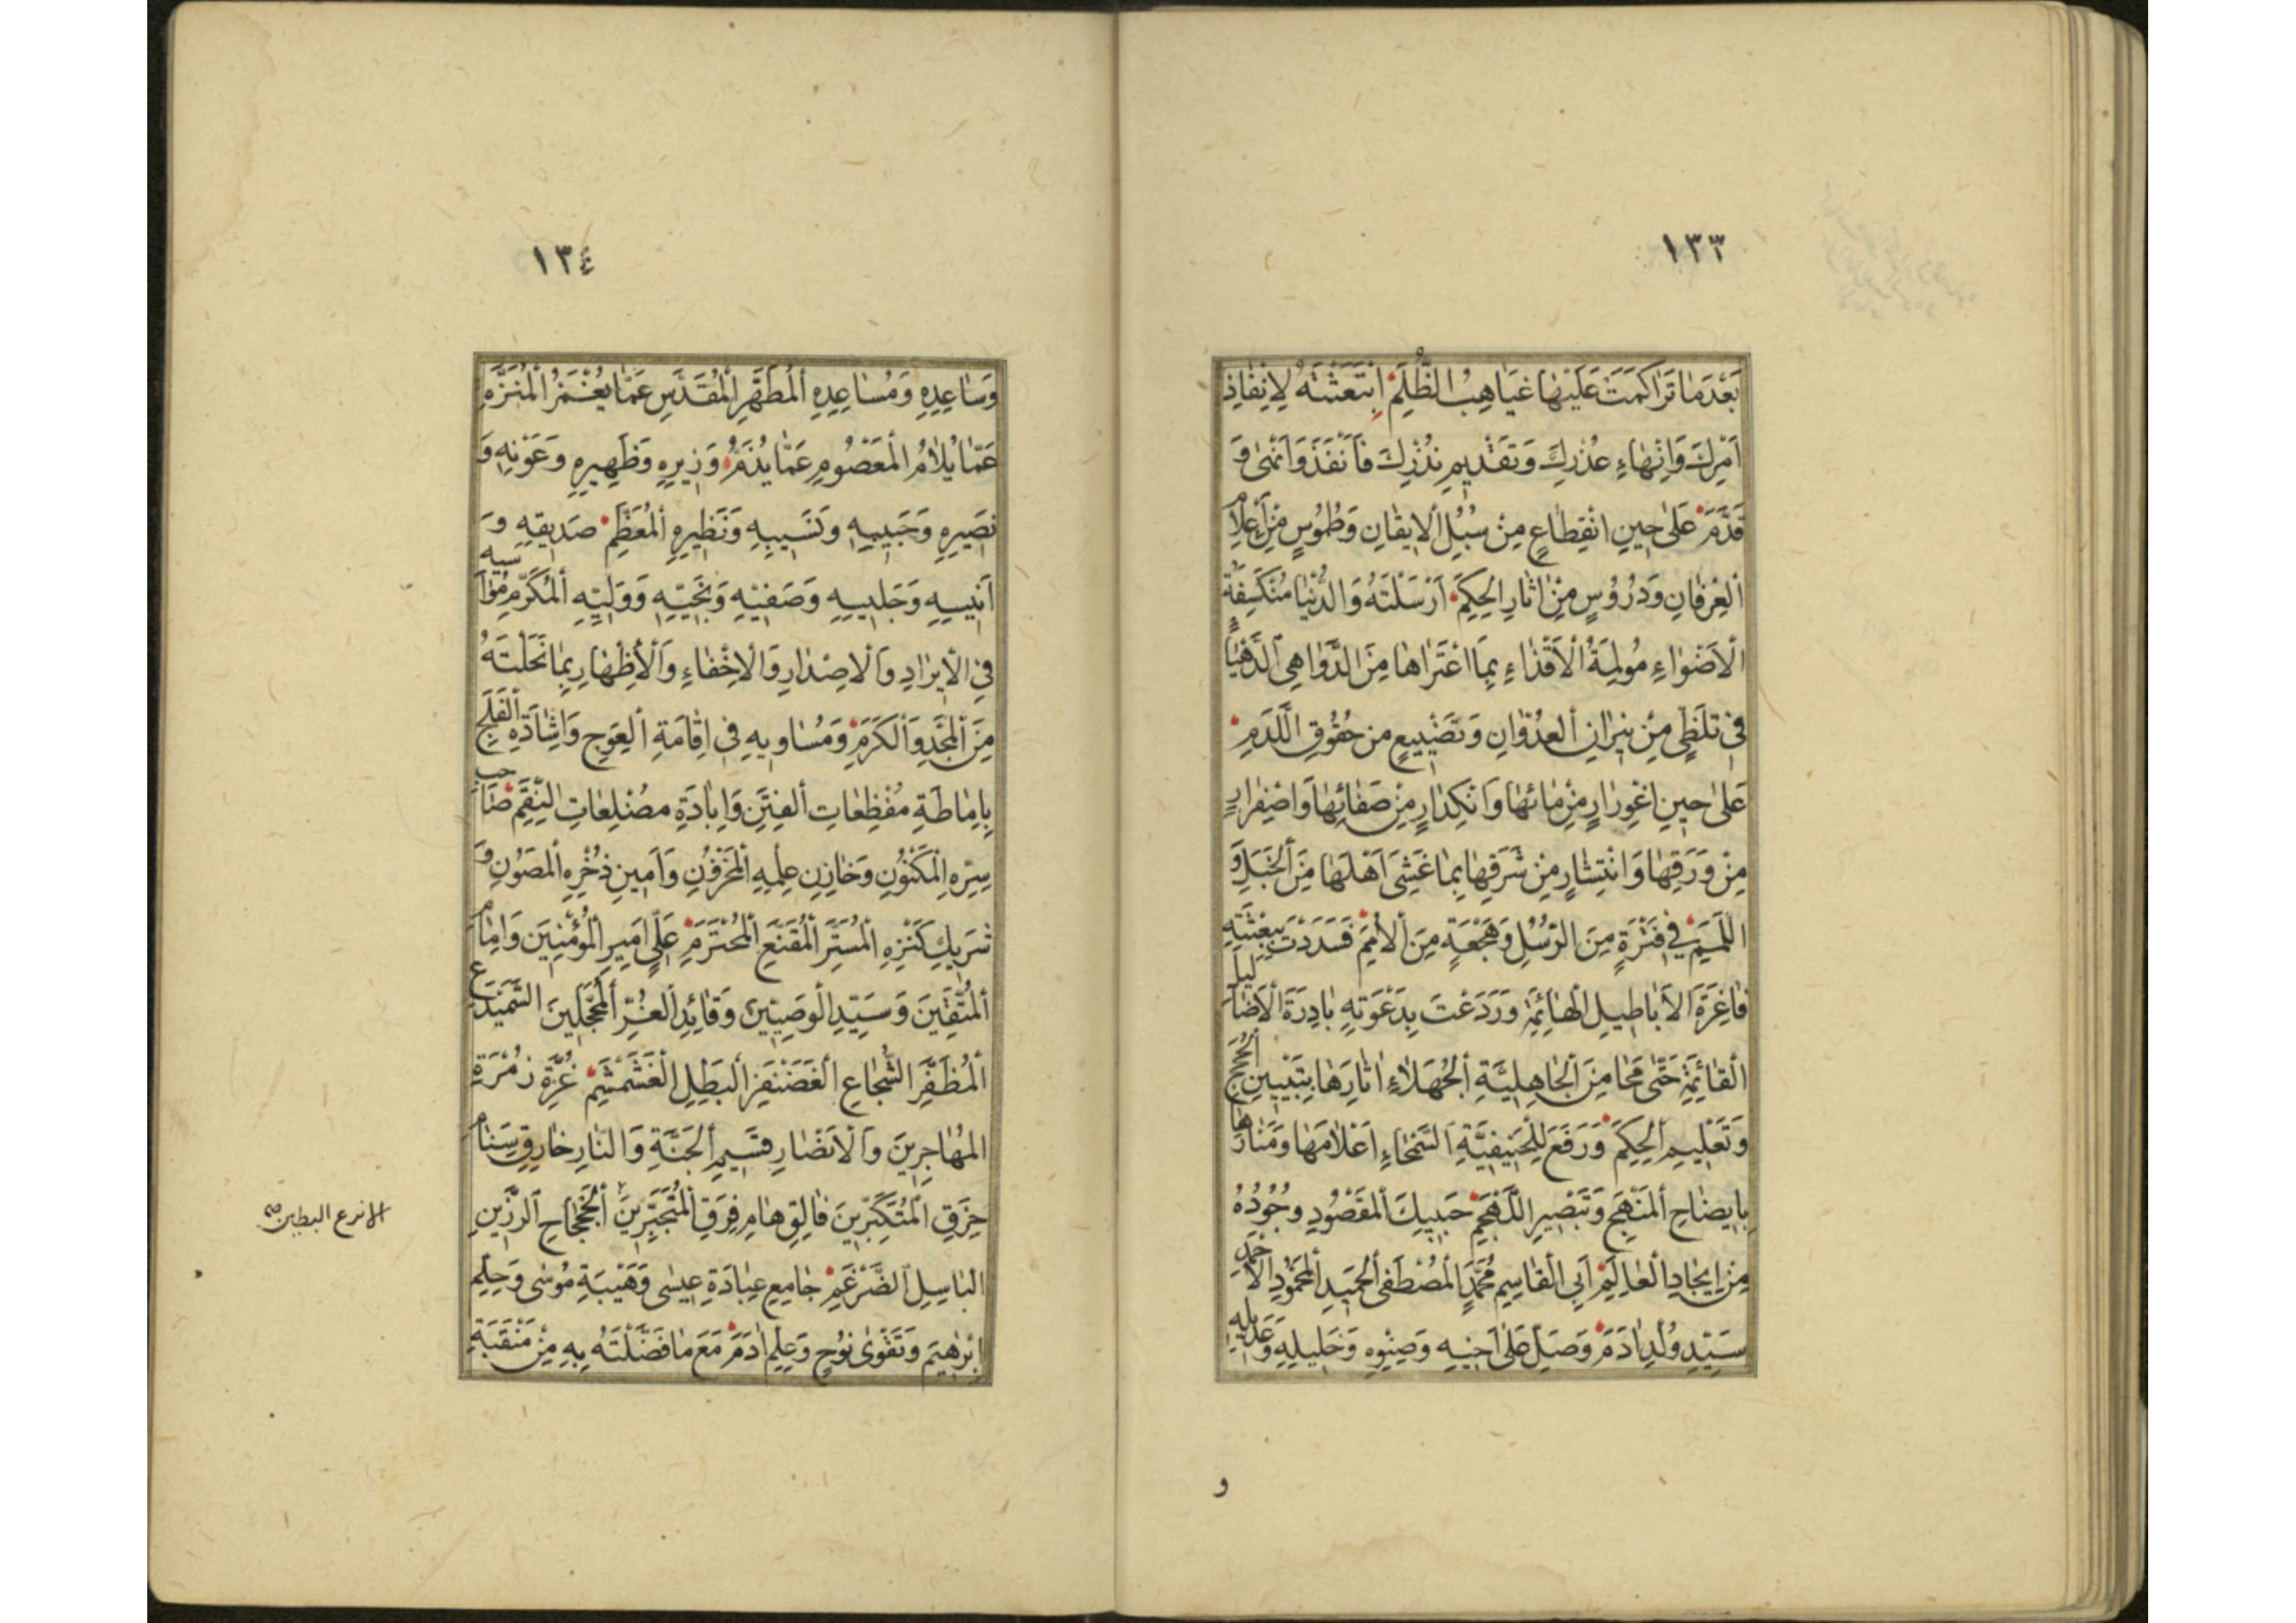 ١٣٣
بَعْدَمَا تَرَاكَمَتْ عَلَيْهَا غَيَاهِبُ الظُّلَمِ اِبْتَعَثْتَهُ لِاِنْفَاذِ
اَمْرِكَ وَاِنْهَاءِ عُذْرِكَ وَتَقْدِيمِ نُذُرِكَ فَاَنْفَذَ وَاَنْهٰى وَ
قَدَّمَ عَلىٰ حِينِ انْقِطَاعٍ مِنْ سُبُلِ الْايقَانِ وَطُمُوسٍ مِنْ اَعْلَامِ
الْعِرْفَانِ وَدُرُوُسٍ مِنْ اٰثَارِ الْحِكَمِ اَرْسَلْتَهُ وَالدُّنْيَا مُنْكَسِفَةُ
الْاَضْوَاءِ مُولِمَةُ الْاَقْذَاءِ بِمَا اعْتَرَاهَا مِنَ الدَّوَاهِي الدَّهْيَاءِ
فِي تَلَظٍّ مِنْ نِيرَانِ الْعُدْوَانِ وَتَضْيِيعٍ مِنْ حُقُوقِ اللَّدَمِ
عَلىٰ حِينِ اغْوِرَارٍ مِنْ مَائِهَا وَانْكِدَارٍ مِنْ صَفَائِهَا وَاصْفِرَارٍ
مِنْ وَرَقِهَا وَانْتِشَارٍ مِنْ شَرَقِهَا بِمَا غَشِيَ اَهْلَهَا مِنَ الْخَبَلِ وَ
اللَّمَمِ فِي فَتْرَةٍ مِنَ الرُّسُلِ وَهَجْعَةٍ مِنَ الْاُمَمِ فَسَدَدْتَ بِبِعْثَتِهِ
فَاغِرَةَ الْاَبَاطِيلِ الْهَائِمَةِ وَرَدَعْتَ بِدَعْوَتِهِ بَادِرَةَ الْاَضَالِيلِ
الْقَائِمَةِ حَتّٰى مَحَا مِنَ الْجَاهِلِيَّةِ الْجُهَلَاءِ اٰثَارَهَا بِتَبْيِينِ الْحُجَجِ
وَتَعْلِيمِ الْحِكَمِ وَرَفَعَ لِلْحَنِيفِيَّةِ السَّمْحَاءِ اَعْلَامَهَا وَمَنَارَهَا
بِايضَاحِ الْمَنْهَجِ وَتَبْصِيرِ اللَّهْجَمِ حَبِيبِكَ الْمَقْصُودِ وُجُودُهُ
مِنْ اِيجَادِ الْعَالَمِ اَبِي الْقَاسِمِ مُحَمَّدٍ الْمُصْطَفَى الْحَمِيدِ الْمَحْمُودِ الْاَحْمَدِ
سَيِّدِ وُلْدِ اٰدَمَ وَصَلِّ عَلىٰ اَخِيهِ وَصِنْوِهِ وَخَلِيلِهِ وَعَدِيلِهِ
و
١٣٤
وَسَاعِدِهِ وَمُسَاعِدِهِ الْمُطَهَّرِ الْمُقَدَّسِ عَمَّا يُغْمَزُ الْمُنَزَّهِ
عَمَّا يُلَامُ الْمَعْصُومِ عَمَّا يُذَمُّ وَزِيرِهِ وَظَهِيرِهِ وَعَوْنِهِ وَ
نَصِيرِهِ وَحَبِيبِهِ وَنَسِيبِهِ وَنَظِيرِهِ الْمُعَظَّمِ صَدِيقِهِ وَ
اَنِيسِهِ وَجَلِيسِهِ وَصَفِيِّهِ وَنَجِيِّهِ وَوَلِيِّهِ الْمُكَرَّمِ مُوَاسِيهِ
فِي الْاِيرَادِ وَالْاِصْدَارِ وَالْاِخْفَاءِ وَالْاِظْهَارِ بِمَا نَحَلْتَهُ
مِنَ الْمَجْدِ وَالْكَرَمِ وَمُسَاوِيهِ فِي اِقَامَةِ الْعِوَجِ وَاِشَادَةِ الْفَلَجِ
بِاِمَاطَةِ مُفْظِعَاتِ الْفِتَنِ وَاِبَادَةِ مُضْلِعَاتِ النِّقَمِ صَاحِبِ
سِرِّهِ الْمَكْنُونِ وَخَازِنِ عِلْمِهِ الْمَخْزُونِ وَاَمِينِ ذُخْرِهِ الْمَصُونِ وَ
شَرِيكِ كَنْزِهِ الْمُسَتَّرِ الْمُقَنَّعِ الْمُحْتَرَمِ عَلِيٍّ اَمِيرِ الْمُؤْمِنِينَ وَاِمَامِ
الْمُتَّقِينَ وَسَيِّدِ الْوَصِيِّينَ وَقَائِدِ الْغُرِّ الْمُحَجَّلِينَ السَّمَيْدَعِ
الْمُظَفَّرِ الشُّجَاعِ الْغَضَنْفَرِ الْبَطَلِ الْغَشَمْشَمِ غُرَّةِ زُمْرَةِ
الْمُهَاجِرِينَ وَالْاَنْصَارِ قَسِيمِ الْجَنَّةِ وَالنَّارِ خَارِقِ سَنَامِ
حِزَقِ الْمُتَكَبِّرِينَ فَالِقِ هَامِ فِرَقِ الْمُتَجَبِّرِينَ الْجَحْجَاحِ الرَّزِينِ
الانزع البطين
الْبَاسِلِ الضَّرْغَمِ جَامِعِ عِبَادَةِ عِيسٰى وَهَيْبَةِ مُوسٰى وَحِلْمِ
اِبْرٰهِيمَ وَتَقْوٰى نُوحٍ وَعِلْمِ اٰدَمَ مَعَ مَا فَضَّلْتَهُ بِهِ مِنْ مَنْقَبَةِ